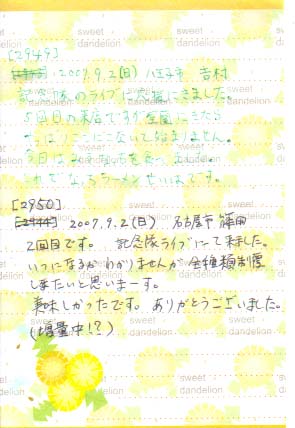 [2949]
2007.9.2(日) 八王子市 吉村
記念隊のライブに応援にきました。
5回目の来店ですが全国にきたら
やっぱりここにこないと始まりません。
今日は
これで なっちラーメン せいはです。
[2950]
2007.9.2(日) 名古屋市
2回目です。 記念隊ライブにて来ました。
いつになるかわかりませんが全種類制覇
しまたいと思いまーす。
美味しかったです。 ありがとうございました。
(増量中!?)
sweet dandelion